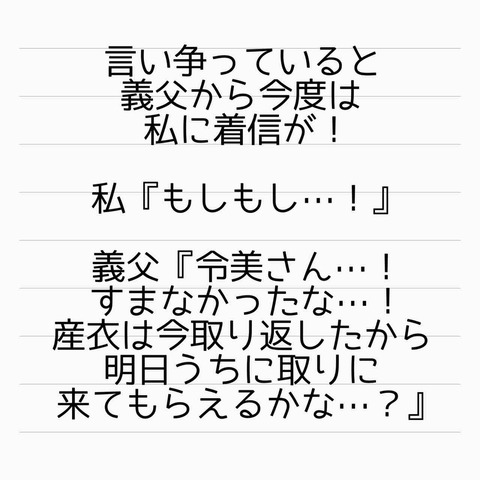 言い争っていると
義父から今度は
私に着信が！
私『もしもし…！』
義父『令美さん…！
すまなかったな…！
産衣は今取り返したから
明日うちに取りに
来てもらえるかな…？』